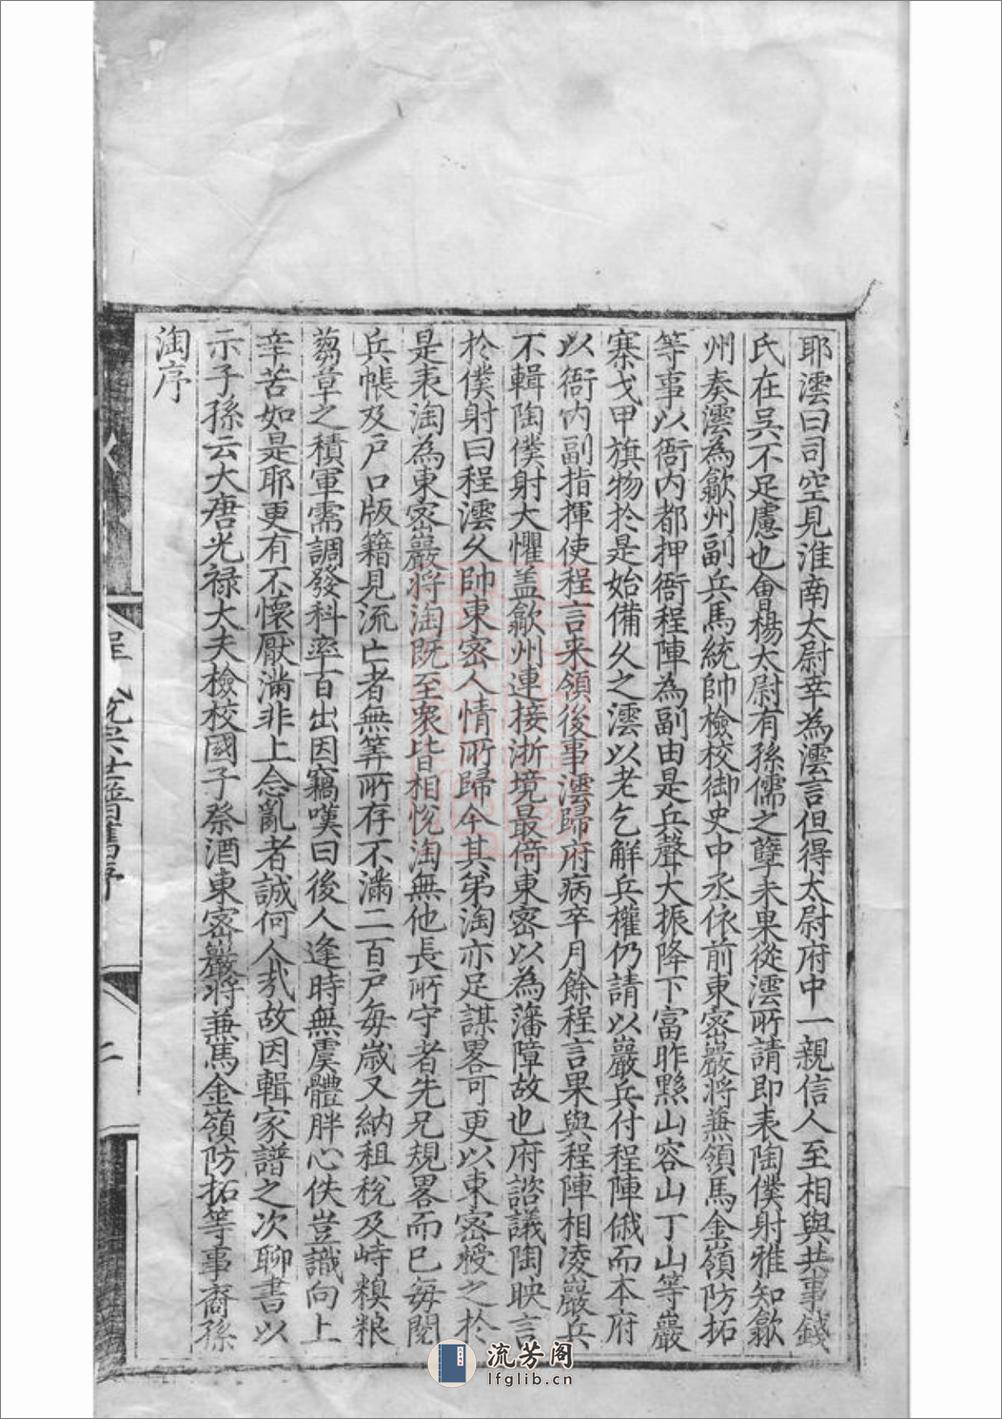 耶澐曰司空見淮南太尉幸為澐言但得太尉府中一親信人至相與共事錢
氏在吳不足慮也會楊太尉有孫儒之孽未果從澐所請即表陶僕射雅知歙
州奏澐為歙州副兵馬統帥檢校御史中丞依前東密巖將兼領馬金嶺防拓
等事以衙內都押衙程陣為副由是兵聲大振降下富昨黟山容山丁山等巖
寨戈甲旗物於是始備久之澐以老乞解兵權仍請以巖兵付程陣俄而本府
以衙內副指揮使程言来領後事澐歸府病卒月餘程言果與程陣相凌巖兵
不輯陶僕射大懼盖歙州連接浙境最倚東密以為藩障故也府諮議陶映言
於僕射曰程澐久帥東密人情所歸今其第淘亦足謀畧可更以東密授之於
是表淘為東密巖將淘既至衆皆相悅淘無他長所守者先兄規畧而已每閱
兵帳及戶口版籍見流亡者無筭所存不滿二百戶每歲又納租稅及峙糗粮
蒭草之積軍需調發科率百出因竊嘆曰後人逢時無虞體胖心佚豈識向上
辛苦如是耶更有不懷厭滿非上念亂者誠何人㢤故因輯家譜之次聊書以
示子孫云大唐光禄大夫檢校國子祭酒東密巖將兼馬金嶺防拓等事裔孫
淘序
程氏
世譜舊序
二
流芳阁
lfglib.cn